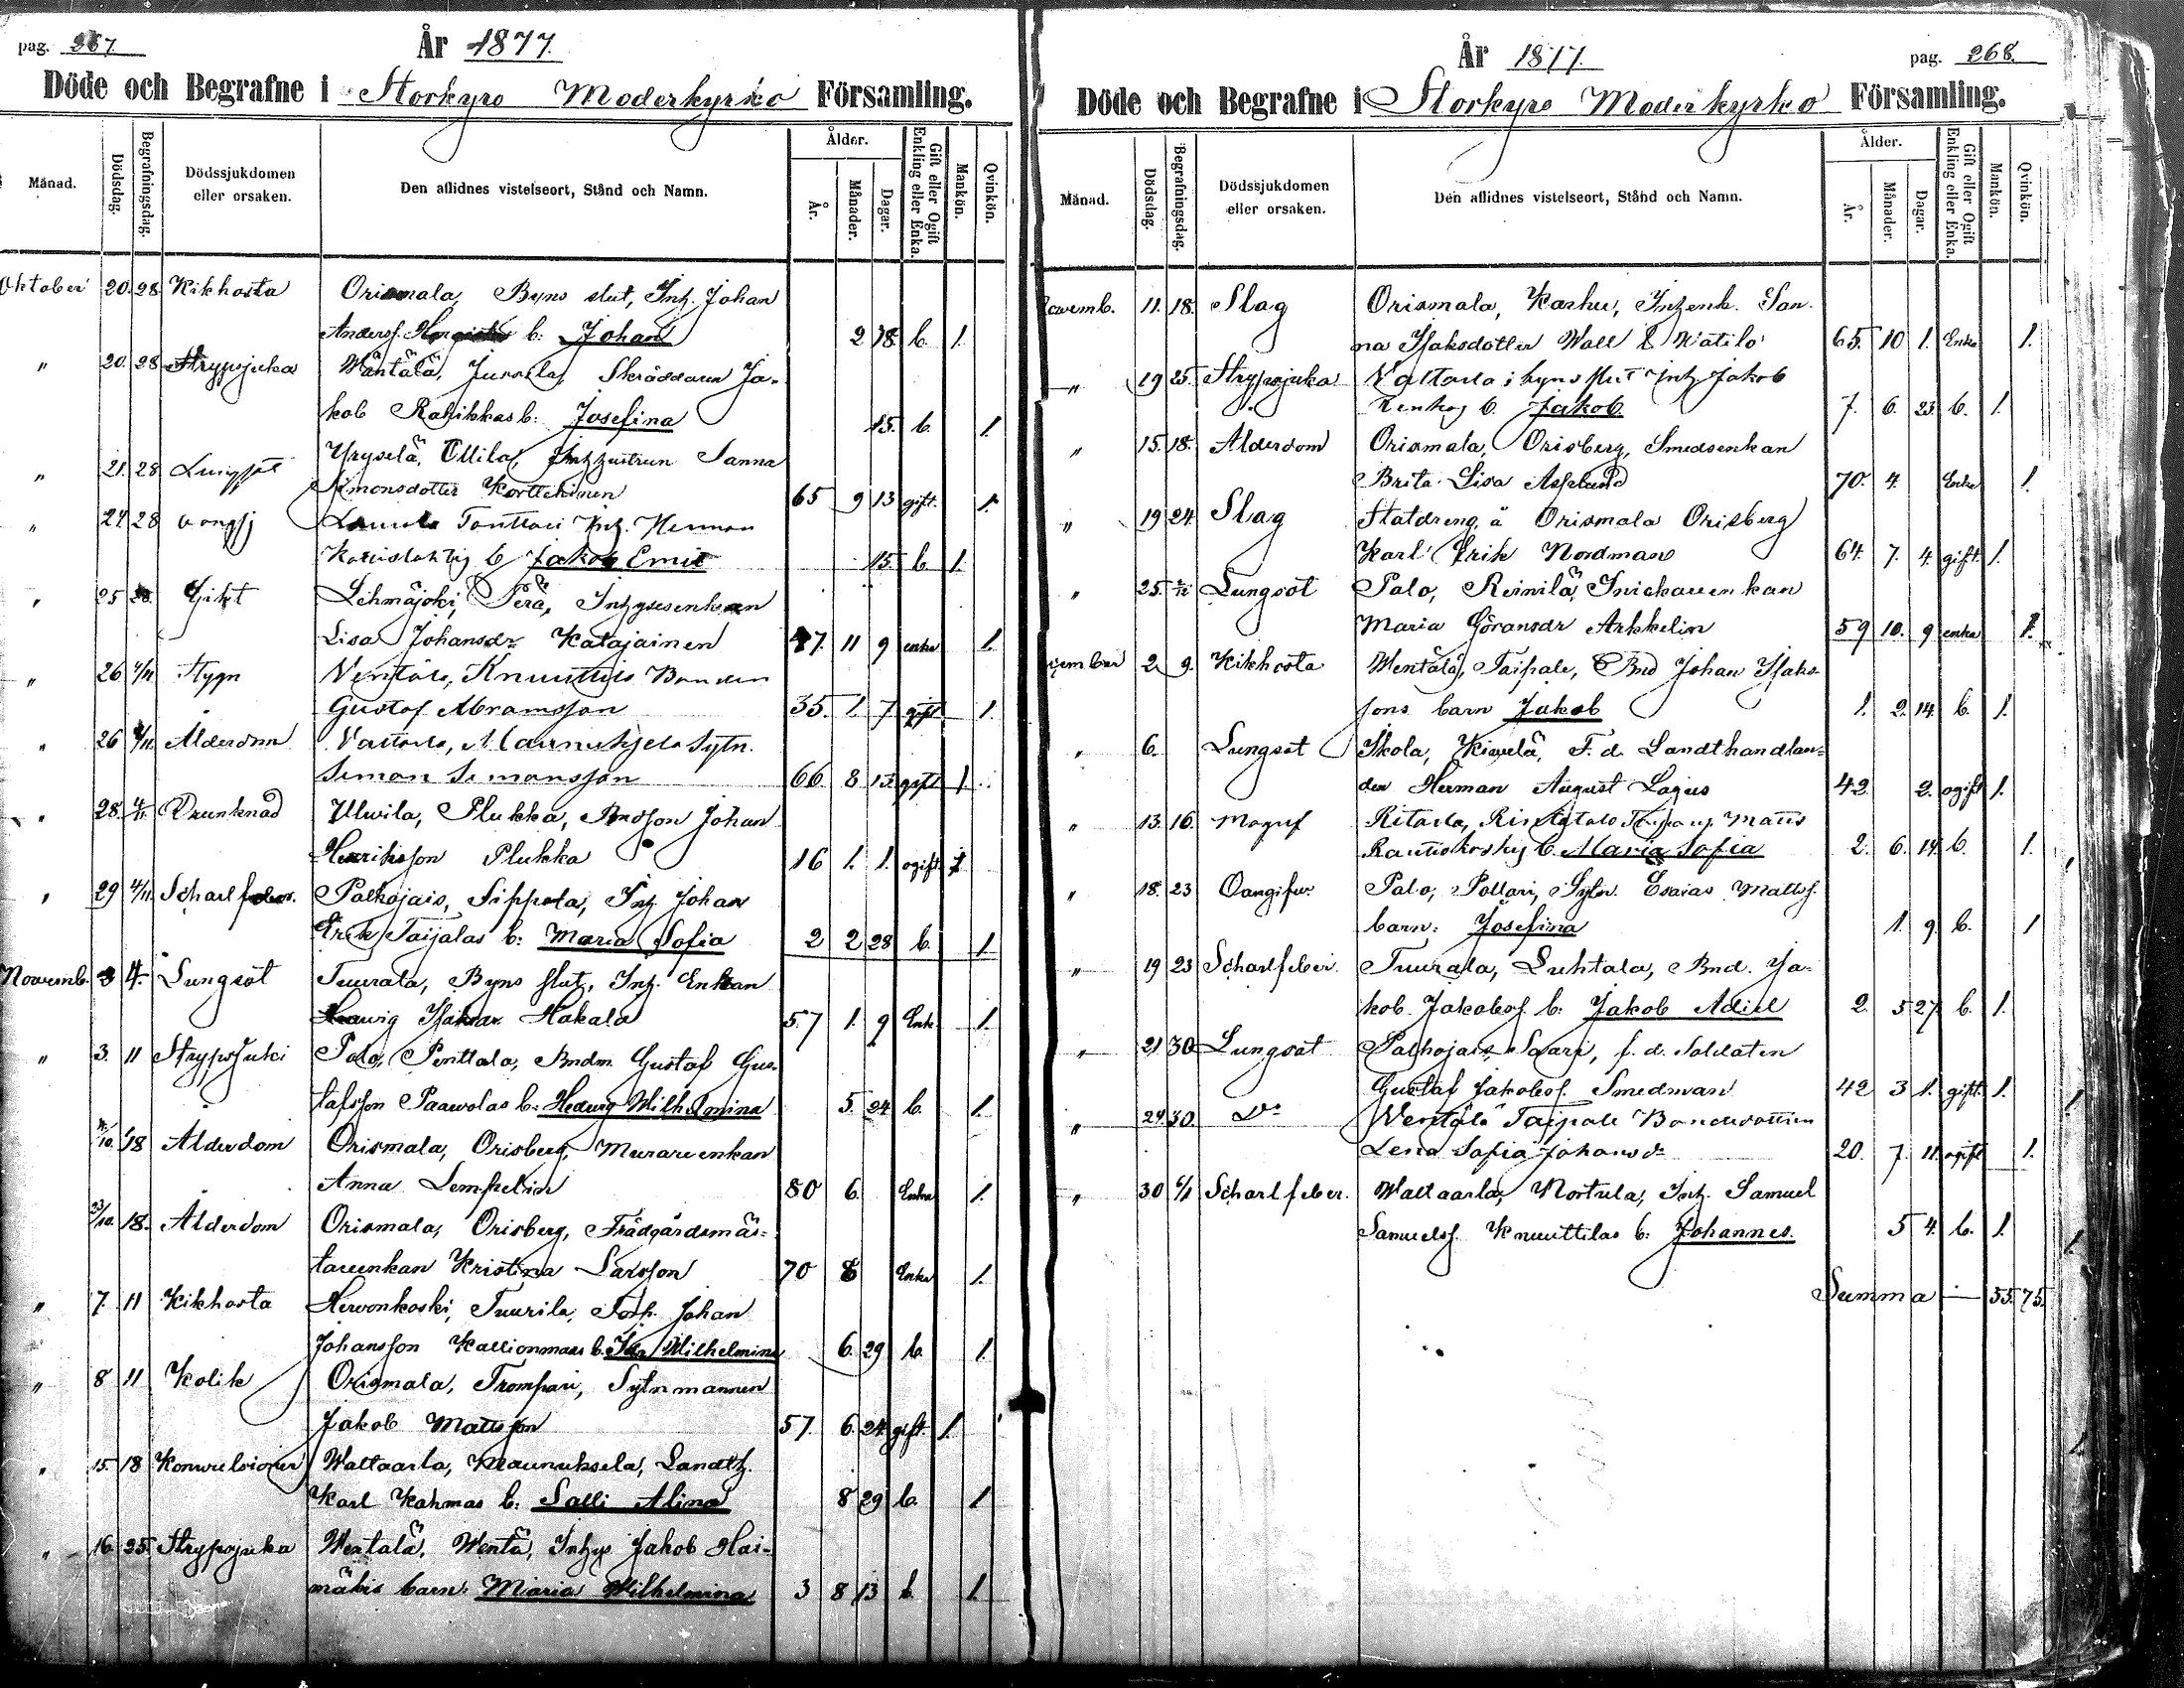 pag. 267.
År 1877.
Döde och Begrafne i Storkyro Moderkyrko Församling.
Månad.
Dödsdag.
Begrafningsdag.
Dödssjukdomen eller orsaken.
Den aflidnes vistelseort, Stånd och Namn.
Ålder.
År.
Månader.
Dagar.
Gift eller Ogift Enkling eller Enka.
Mankön.
Qvinkön.
Oktober 20. 28 Kikhosta Orismala, Byns slut, Inh. Johan
Andersf. b: Johan 2 18. b. 1.
" 20. 28 Strypsjuka Wäntälä, Jussila, Skräddaren Ja-
kob Rahikkas b: Josefina 15. b. 1.
" 21. 28 Lungsot Yryselä, Ollila, Sanna
Simonsdotter 65 9 13 gift. 1.
" 24 28 Tonttari Inh. Herman
b Jakob Emil 15. b 1.
" 25 28. Gikt Lehmäjoki, Perä,
Lisa Johansdr Katajainen 47. 11 9 enka 1.
" 26 4/11 Stygn Wentälä, Knuuttila Bonden
Gustaf Abramsson 35. 1. 7 gift 1.
" 26 4/11 Ålderdom Valtarla, Maunuksela Sytn.
Simon Simonsson 66 8 13 gift 1
" 28. 4/11 Drunknad Ulvila, Plukka, Bndson Johan
Henriksson Plukka 16 1. 1. ogift 1
" 29 4/11 Scharlfeber. Palhojais, Sippola, Inh Johan
Erik Taijalas b: Maria Sofia 2 2 28 b. 1.
Novemb. 3 4. Lungsot Tuurala, Byns slut, Inh. Enkan
Hedvig Isaksdr Hakala 57 1. 9 Enk. 1.
" 3. 11 Strypsjuka Palo, Penttala, Bndn. Gustaf Gus-
tafsson Paavolas b: Hedvig Wilhelmina 5. 24 b. 1.
/10. 18 Ålderdom Orismala, Orisberg, Murareenkan
Anna Lempelin 80 6. Enka 1.
23/10. 18. Ålderdom Orismala, Orisberg, Trädgårdsmäs-
tareenkan Kristina Larsson 70 8 Enka 1.
" 7. 11 Kikhosta Hervonkoski, Tuurila, Torp. Johan
Johansson Kallionmaas b. Ida Wilhelmina 6. 29 b. 1.
" 8 11 Kolik Orismala, Trompari, Sytnmannen
Jakob Mattsson 57. 6. 24 gift. 1.
" 15. 18 Konvulsioner Waltaarla, Maunuksela, Landth.
Karl Kahmas b: Salli Alina 8 29 b. 1
" 16. 25. Strypsjuka Wentälä, Wentä, Inhys Jakob Hai-
mäkis barn: Maria Wilhelmina 3 8 13 b. 1.
År 1877.
pag. 268.
Döde och Begrafne i Storkyro Moderkyrko Församling.
Månad.
Dödsdag.
Begrafningsdag.
Dödssjukdomen eller orsaken.
Den aflidnes vistelseort, Stånd och Namn.
Ålder.
År.
Månader.
Dagar.
Gift eller Ogift Enkling eller Enka.
Mankön.
Qvinkön.
Novemb. 11. 18. Slag Orismala, Karhu, Inh.enk. San-
na Isaksdotter Wall l. Katila 65. 10 1. Enka 1.
" 19 25. Strypsjuka Valtarla, byns slut Inh Jakob
b. Jakob 7. 6. 23. b. 1.
" 15. 18. Ålderdom Orismala, Orisberg, Smedsenkan
Brita Lisa Asplund 70. 4. Enka 1.
" 19 24. Slag Statdreng. å Orismala Orisberg
Karl Erik Nordman 64. 7. 4. gift. 1.
" 25. 2/12 Lungsot Palo, Reinilä, Snickareenkan
Maria Göransdr Arkkelin 59 10. 9 enka 1.
December 2. 9. Kikhosta Wentälä, Taipale, Bnd Johan Isaks-
sons barn Jakob 1. 2. 14. b. 1.
" 6. Lungsot Skola, Kiwelä, F. d. Landthandlan-
den Herman August Lagus 42. 2. ogift 1.
" 13. 16. Magref Ritarla, Matts
Rautiokoskis b. Maria Sofia 2. 6. 14 b. 1.
" 18. 23 Palo, Pollari, Sytn. Esaias Mattsf.
barn: Josefina 1. 9. b. 1
" 19 23 Scharlfeber. Tuurala, Luhtala, Bnd. Ja-
kob Jakobsf. b: Jakob Adiel 2. 5 27 b. 1.
" 21 30 Lungsot Palhojais Saari, f. d. Soldaten
Gustaf Jakobsf. Smedman 42 3 1. gift. 1.
" 24. 30. Do Wentälä Taipale Bondedottren
Lena Sofia Johansdr 20. 7. 11 ogift 1.
" 30 6/1 Scharlfeber. Waltaarla, Mortula, Inh. Samuel
Samuelsf. Knuuttilas b: Johannes. 5 4. b. 1.
Summa — 55. 75.